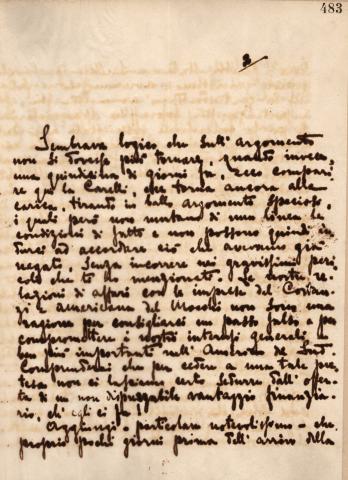 483
3
Sembrava logico che sull'argomento
non si dovesse più tornare, quanto invece,
una quindicina di giorni fa, ecco compari
re qui la Carelli, che torna ancora alla
carica, tirando in ballo argomenti speciosi,
i quali però non mutano di una linea le
condizioni di fatto e non possono quindi in
durci ad accordare ciò che avevamo già
negato, senza incorrere nei gravissimi peri
coli che ti ho menzionato. Le nostre re
lazioni di affari con le imprese del Costan
zi e americana del Mocchi non sono una
ragione per consigliarci un passo falso e per
compromettere i nostri interessi generali
ben più importanti nell'America del Sud.
Comprendrai che per cedere a una tale pre
tesa non ci lasciamo certo sedurre dall'offer
ta di un non disprezzabile vantaggio finanzia
rio, ch'egli ci fa!
Aggiungi - particolare notevolissimo - che
proprio pochi giorni prima dell'arrivo della